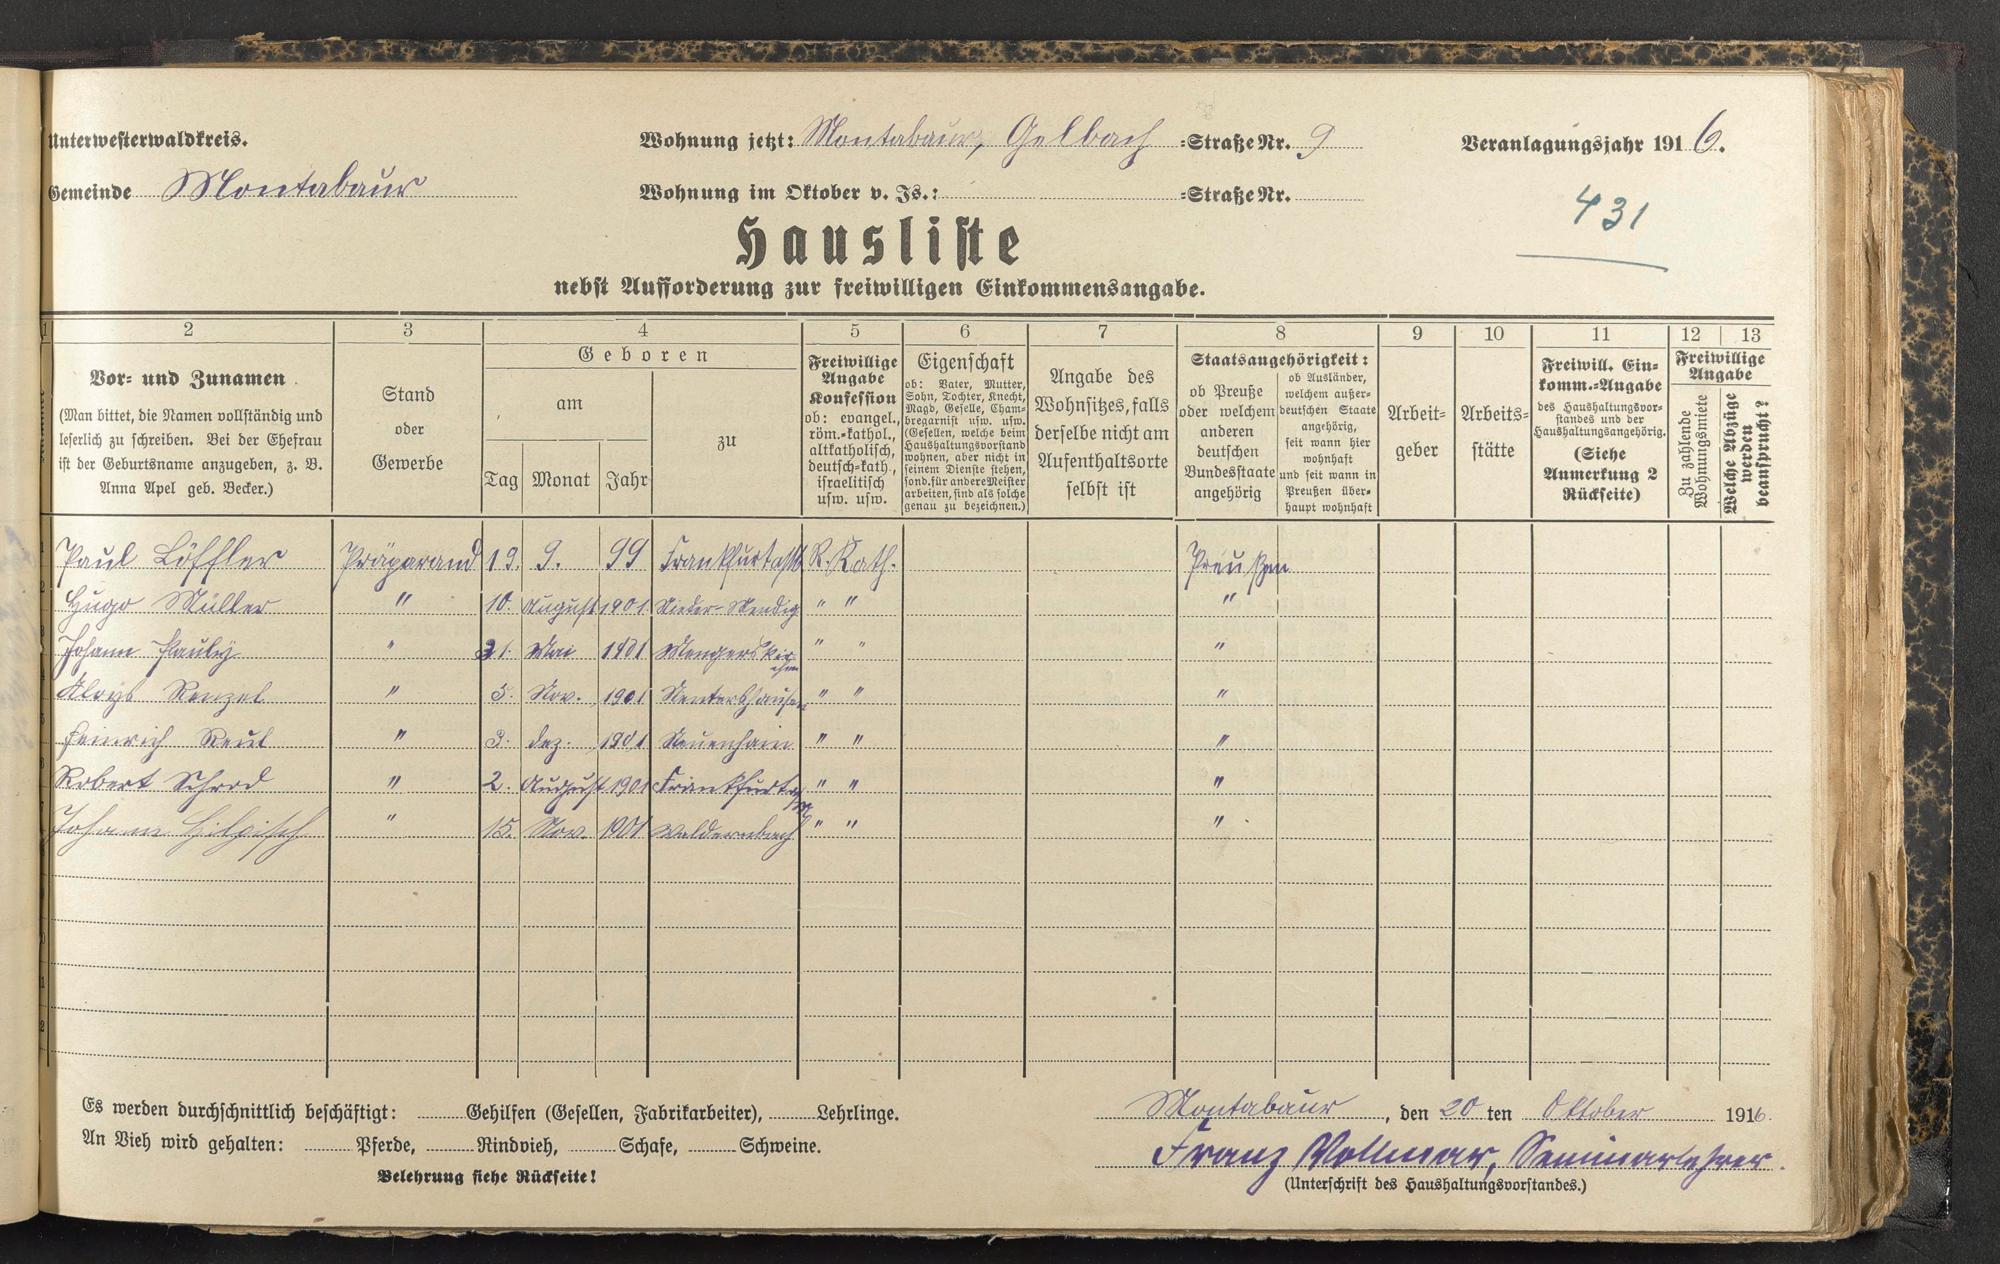 Unterwesterwaldkreis. Wohnung jetzt: Montabaur, Gelbach =Straße Nr. 9 Veranlagungsjahr 1916.
Gemeinde Montabaur Wohnung im Oktober v. Js.: =Straße Nr.
431
Hausliste
nebst Aufforderung zur freiwilligen Einkommensangabe.
1 2 3 4 5 6 7 8 9 10 11 12 13
Vor= und Zunamen
(Man bittet, die Namen vollständig und
leserlich zu schreiben. Bei der Ehefrau
ist der Geburtsname anzugeben, z. B.
Anna Apel geb. Becker.)
Stand
oder
Gewerbe
Geboren
am
Tag Monat Jahr
zu
Freiwillige
Angabe
Konfession
ob: evangel.,
röm.=kathol.,
altkatholisch,
deutsch=kath.,
israelitisch
usw. usw.
Eigenschaft
ob: Vater, Mutter,
Sohn, Tochter, Knecht,
Magd, Geselle, Cham=
bregarnist usw. usw.
(Gesellen, welche beim
Haushaltungsvorstand
wohnen, aber nicht in
seinem Dienste stehen,
sond. für andere Meister
arbeiten, sind als solche
genau zu bezeichnen.)
Angabe des
Wohnsitzes, falls
derselbe nicht am
Aufenthaltsorte
selbst ist
Staatsangehörigkeit:
ob Preuße
oder welchem
anderen
deutschen
Bundesstaate
angehörig
ob Ausländer,
welchem außer=
deutschen Staate
angehörig,
seit wann hier
wohnhaft
und seit wann in
Preußen über=
haupt wohnhaft
Arbeit=
geber
Arbeits=
stätte
Freiwill. Ein=
komm.=Angabe
des Haushaltungsvor=
standes und der
Haushaltungsangehörig.
(Siehe
Anmerkung 2
Rückseite)
Freiwillige
Angabe
Zu zahlende
Wohnungsmiete
Welche Abzüge
werden
beansprucht?
Paul Löffler Präparand 19. 9. 99 Frankfurt a/M R. Kath. Preußen
Hugo Müller " 10. August 1901. Nieder-Mendig " " "
Johann Pauly " 31. Mai 1901 Mengerskirchen " " "
Aloys Renzel " 5. Nov. 1901 Nentershausen " " "
Heinrich Reul " 3. Dez. 1901 Neuenhain " " "
Robert Schrod " 2. August 1901 Frankfurt a/M " " "
Johann Hilpisch " 15. Nov. 1901 Waldernbach " " "
Es werden durchschnittlich beschäftigt: Gehilfen (Gesellen, Fabrikarbeiter), Lehrlinge.
Montabaur, den 20 ten Oktober 1916.
An Vieh wird gehalten: Pferde, Rindvieh, Schafe, Schweine.
Franz Vollmar, Seminarlehrer.
Belehrung siehe Rückseite!
(Unterschrift des Haushaltungsvorstandes.)